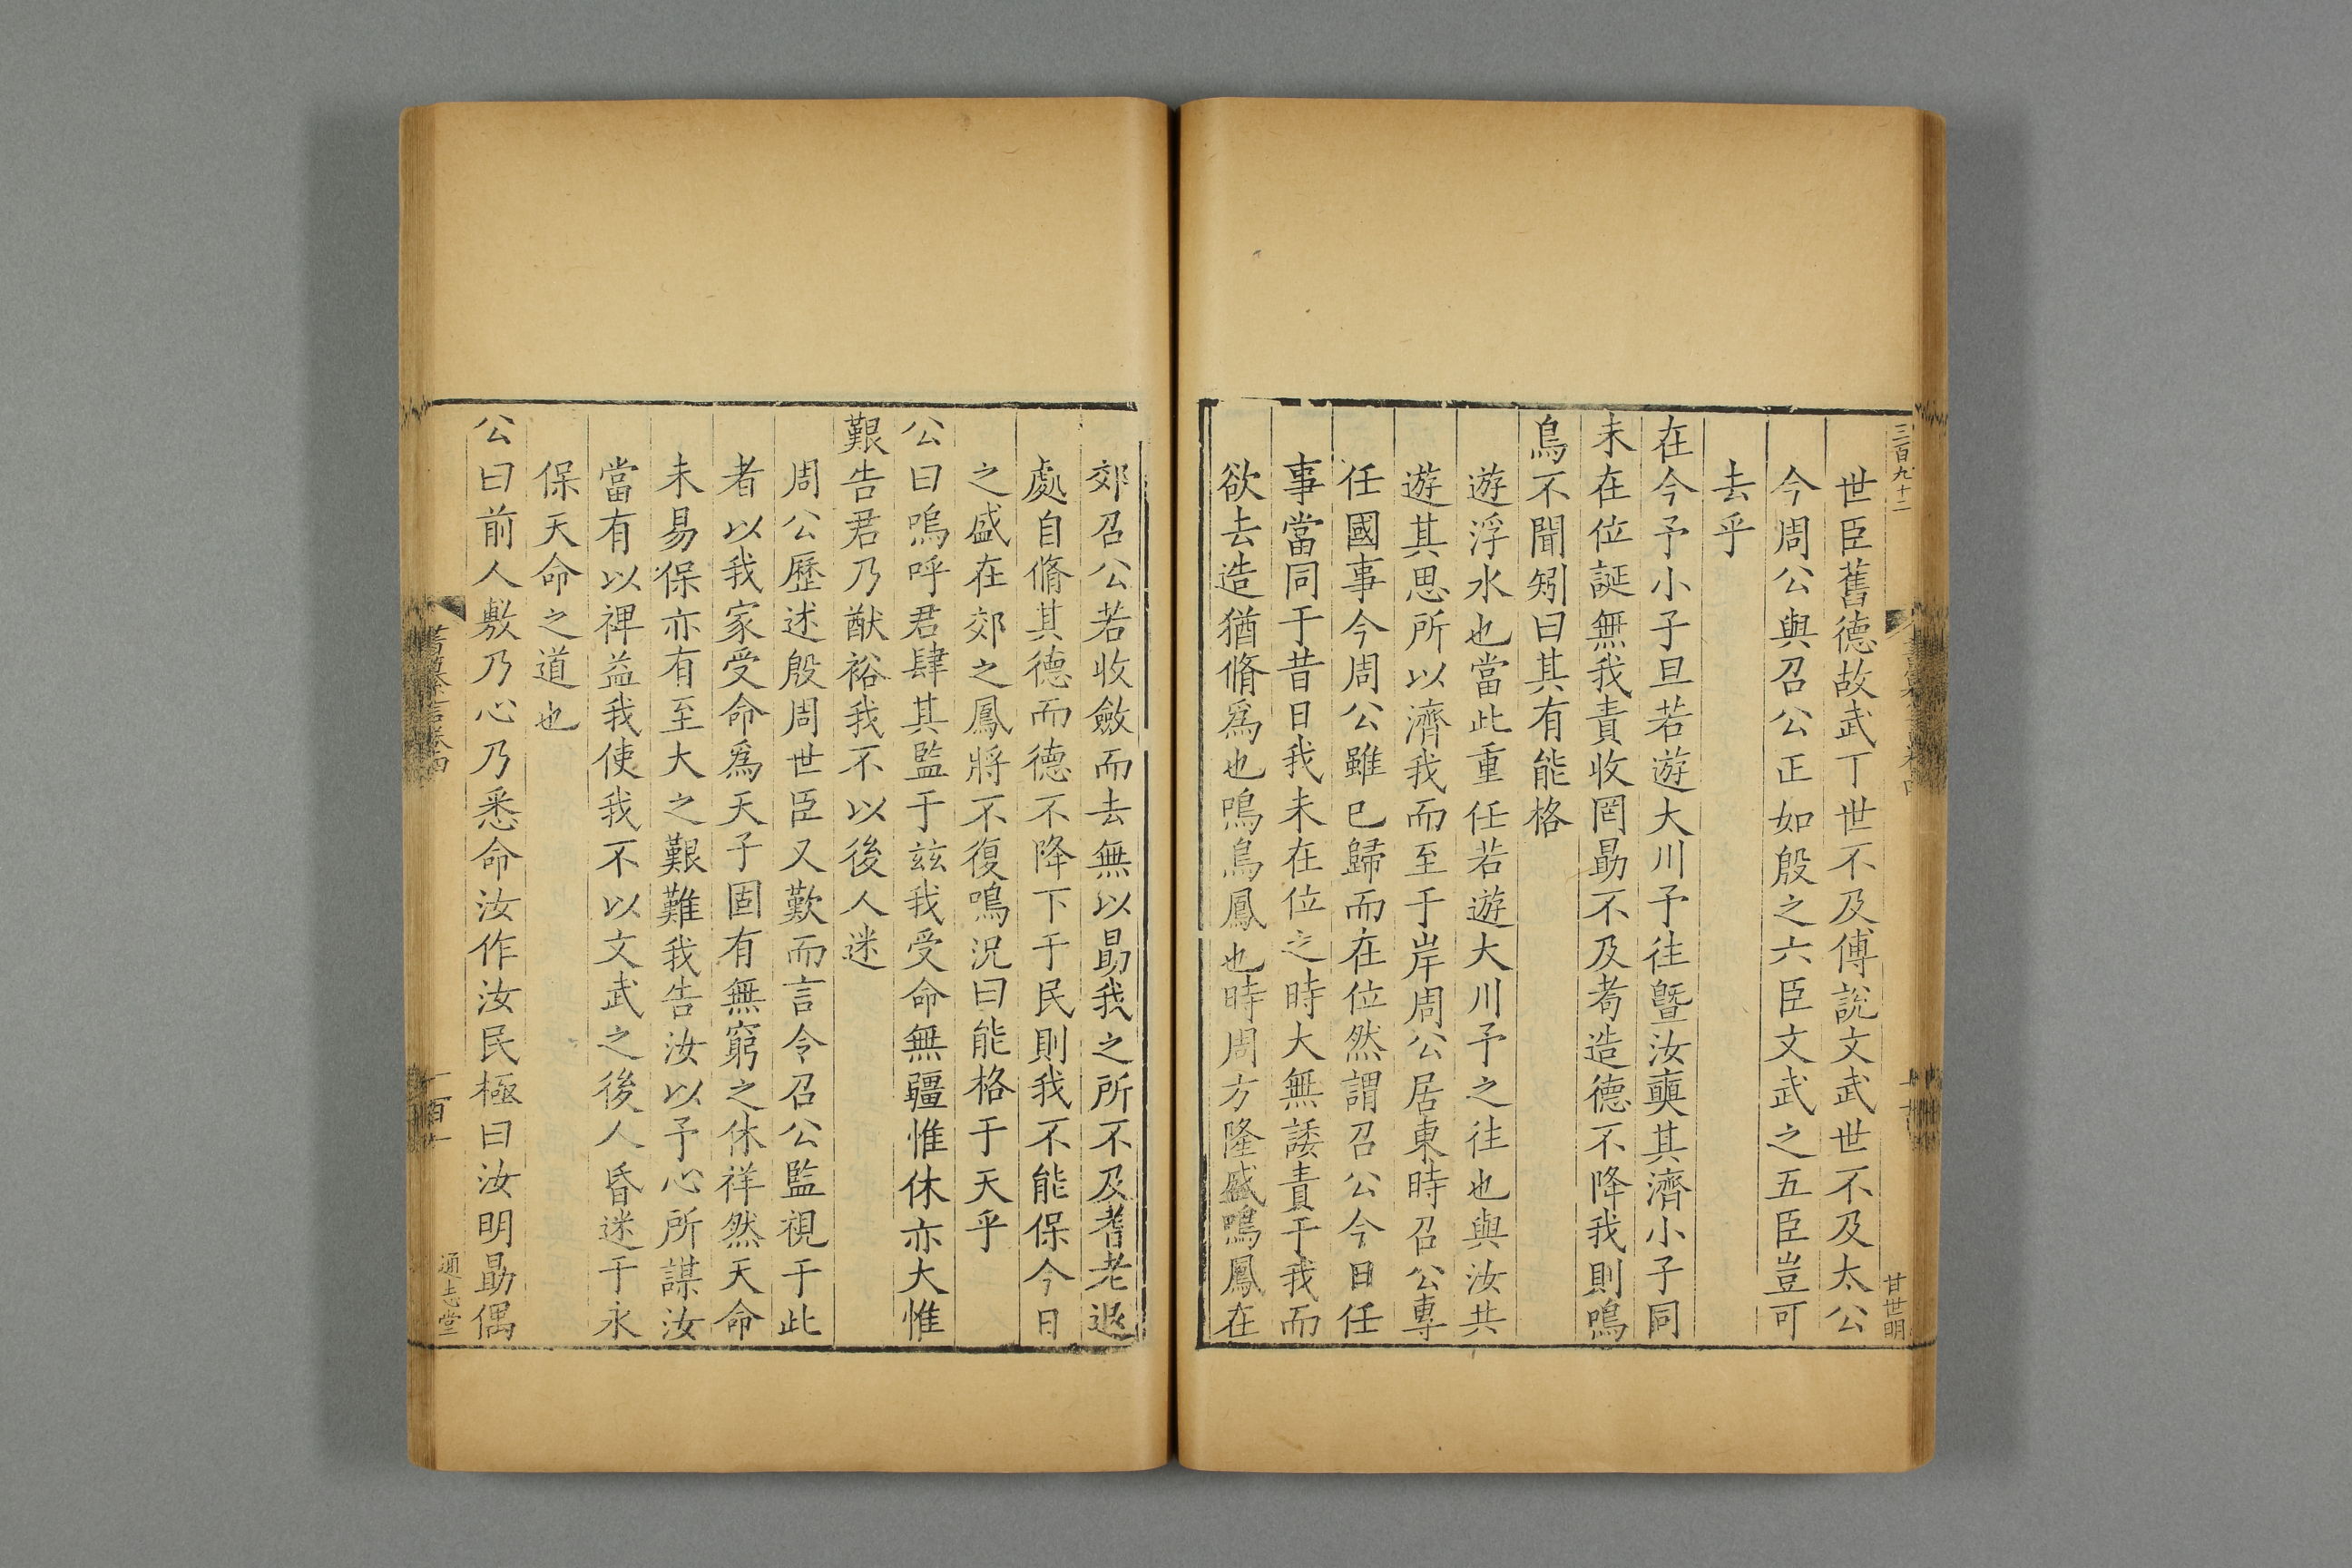 三百九十二
甘世明
世臣舊德故武丁世不及傅說文武世不及太公
今周公與召公正如殷之六臣文武之五臣豈可
去乎
在今予小子旦若遊大川予往曁汝奭其濟小子同
未在位誕無我責收罔勗不及耉造德不降我則鳴
鳥不聞矧曰其有能格
遊浮水也當此重任若遊大川予之往也與汝共
遊其思所以濟我而至于岸周公居東時召公專
任國事今周公雖已歸而在位然謂召公今日任
事當同于昔日我未在位之時大無諉責于我而
欲去造猶脩爲也鳴鳥鳳也時周方隆盛鳴鳳在
郊召公若收斂而去無以勗我之所不及耆老退
處自脩其德而德不降下于民則我不能保今日
之盛在郊之鳳將不復鳴況曰能格于天乎
公曰嗚呼君肆其監于茲我受命無疆惟休亦大惟
艱告君乃猷裕我不以後人迷
周公歷述殷周世臣又歎而言令召公監視于此
者以我家受命爲天子固有無窮之休祥然天命
未易保亦有至大之艱難我告汝以予心所謀汝
當有以裨益我使我不以文武之後人昏迷于永
保天命之道也
公曰前人敷乃心乃悉命汝作汝民極曰汝明勗偶
通志堂